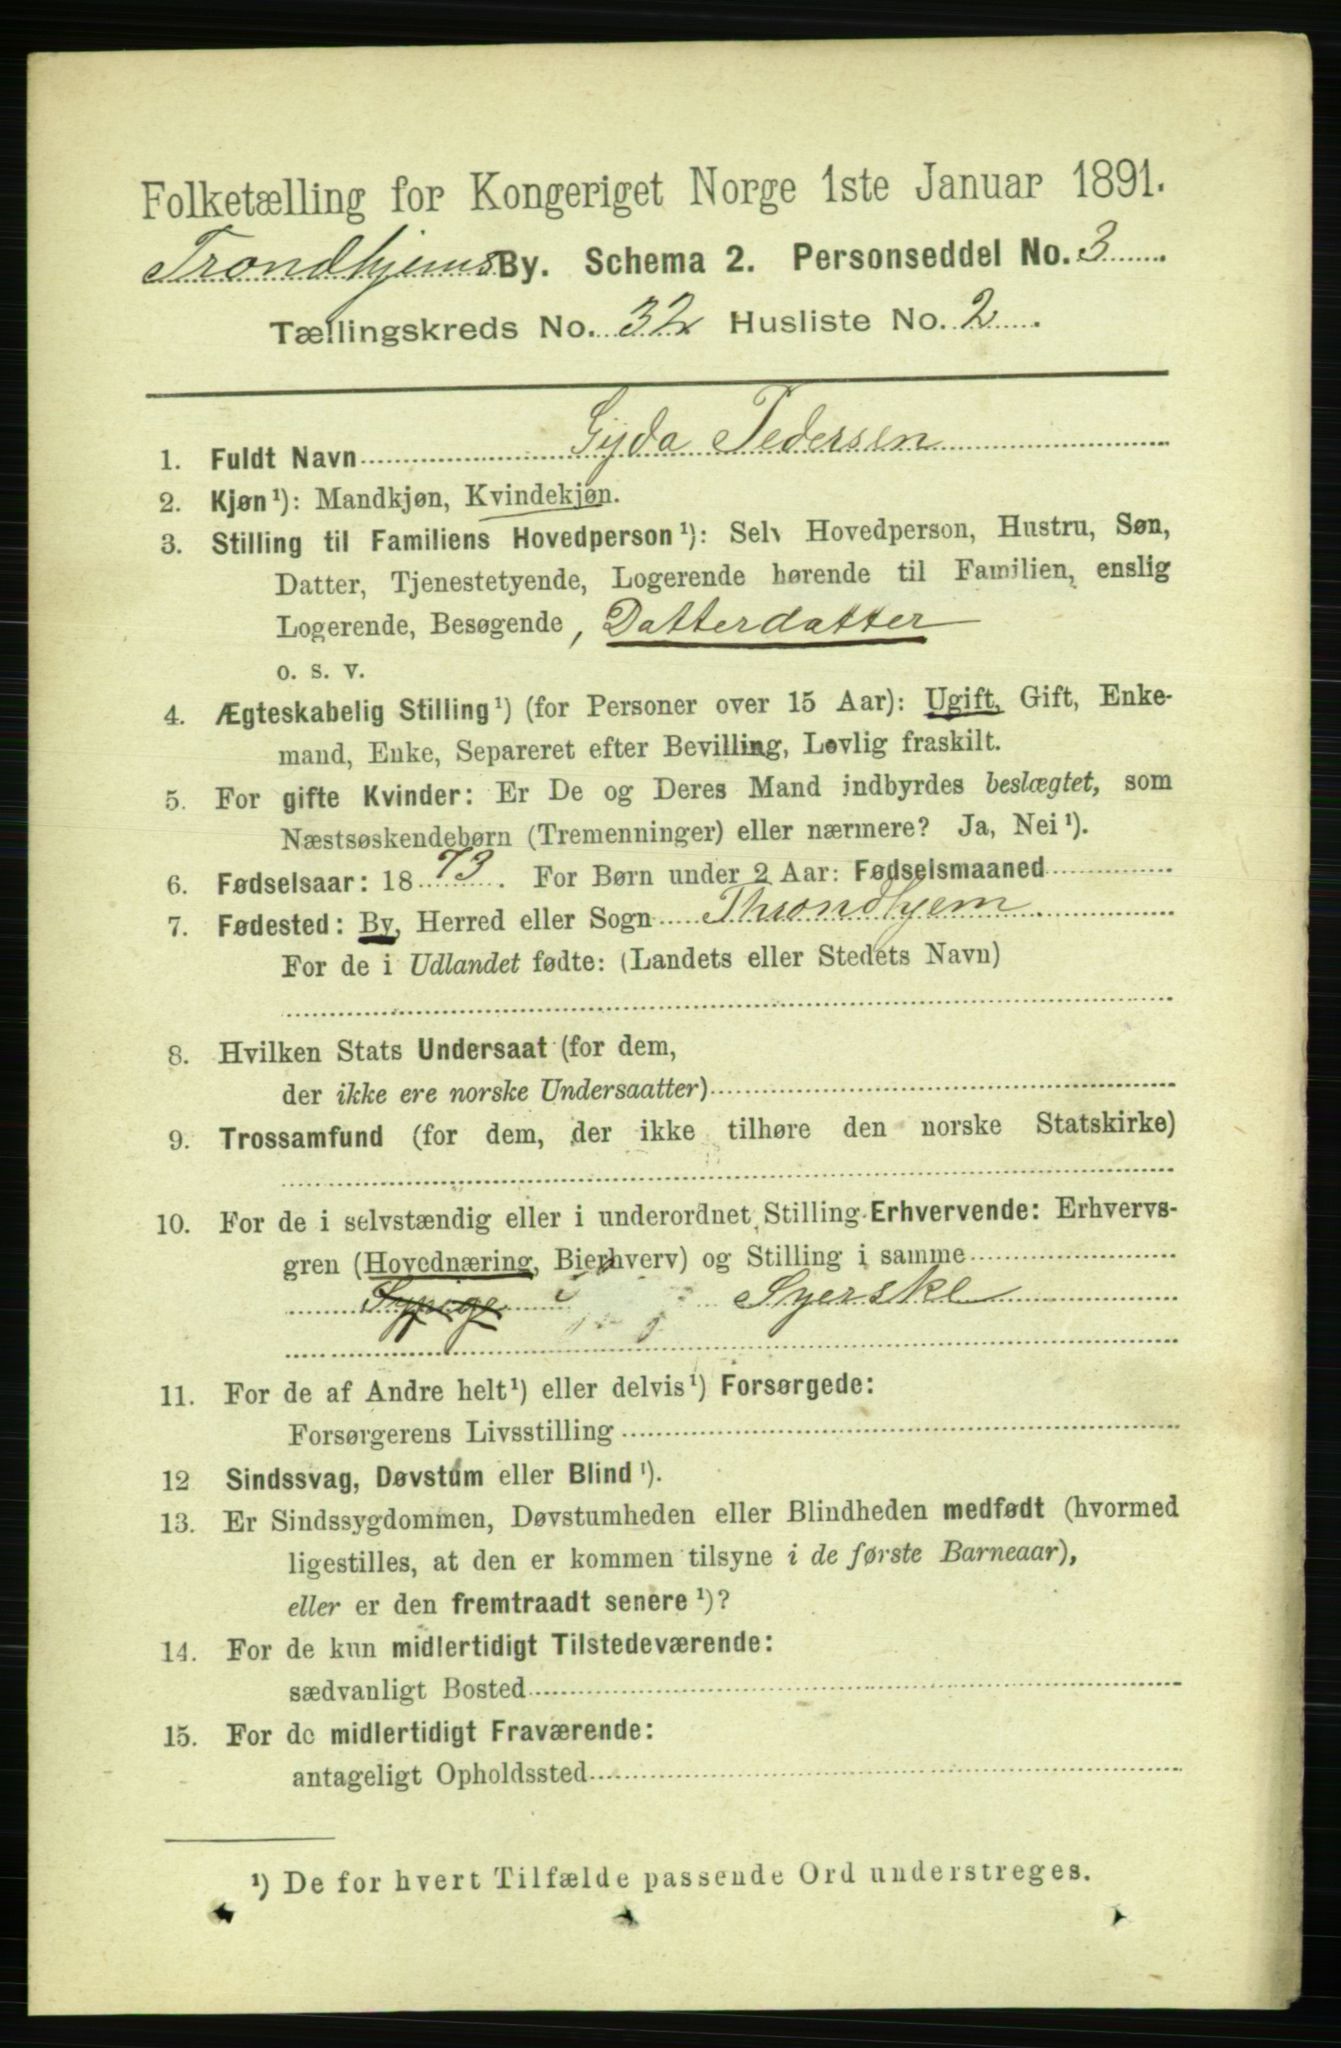 Folketælling for Kongeriget Norge 1ste Januar 1891.
Trondhjems By. Schema 2. Personseddel No. 3
Tællingskreds No. 32 Husliste No. 2
1. Fuldt Navn Gyda Pedersen
2. Kjøn¹): Mandkjøn, Kvindekjøn.
3. Stilling til Familiens Hovedperson¹): Selv Hovedperson, Hustru, Søn,
Datter, Tjenestetyende, Logerende hørende til Familien, enslig
Logerende, Besøgende, Datterdatter
o. s. v.
4. Ægteskabelig Stilling¹) (for Personer over 15 Aar): Ugift, Gift, Enke-
mand, Enke, Separeret efter Bevilling, Lovlig fraskilt.
5. For gifte Kvinder: Er De og Deres Mand indbyrdes beslægtet, som
Næstsøskendebørn (Tremenninger) eller nærmere? Ja, Nei¹).
6. Fødselsaar: 1873. For Børn under 2 Aar: Fødselsmaaned
7. Fødested: By, Herred eller Sogn Throndhjem
For de i Udlandet fødte: (Landets eller Stedets Navn)
8. Hvilken Stats Undersaat (for dem,
der ikke ere norske Undersaatter)
9. Trossamfund (for dem, der ikke tilhøre den norske Statskirke)
10. For de i selvstændig eller i underordnet Stilling Erhvervende: Erhvervs-
gren (Hovednæring, Bierhverv) og Stilling i samme
Sypige Syerske
11. For de af Andre helt¹) eller delvis¹) Forsørgede:
Forsørgerens Livsstilling
12 Sindssvag, Døvstum eller Blind¹).
13. Er Sindssygdommen, Døvstumheden eller Blindheden medfødt (hvormed
ligestilles, at den er kommen tilsyne i de første Barneaar),
eller er den fremtraadt senere¹)?
14. For de kun midlertidigt Tilstedeværende:
sædvanligt Bosted
15. For de midlertidigt Fraværende:
antageligt Opholdssted
¹) De for hvert Tilfælde passende Ord understreges.